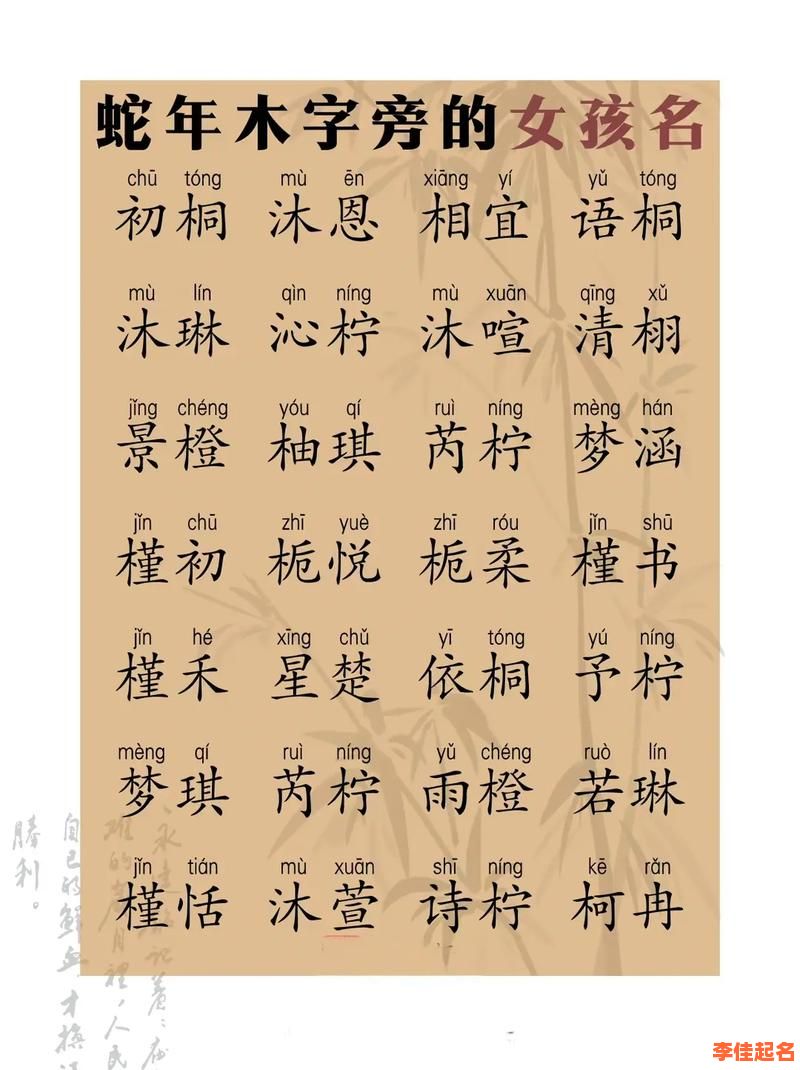 蛇年木字旁的女孩名
chū tóng mù ēn xiāng yí yǔ tóng
初桐 沐恩 相宜 语桐
mù lín qìn níng mù xuān qīng xǔ
沐琳 沁柠 沐喧 清栩
jǐng chéng yóu qí ruì níng mèng hán
景橙 柚琪 芮柠 梦涵
jǐn chū zhī yuè zhī róu jǐn shū
槿初 栀悦 栀柔 槿书
jǐn hé xīng chǔ yī tóng yú níng
槿禾 星楚 依桐 予柠
mèng qí ruì níng yǔ chéng ruò lín
梦琪 芮柠 雨橙 若琳
jǐn tián mù xuān shī níng kē rǎn
槿恬 沐萱 诗柠 柯冉
自己的鲜血
勝利。
李佳起名